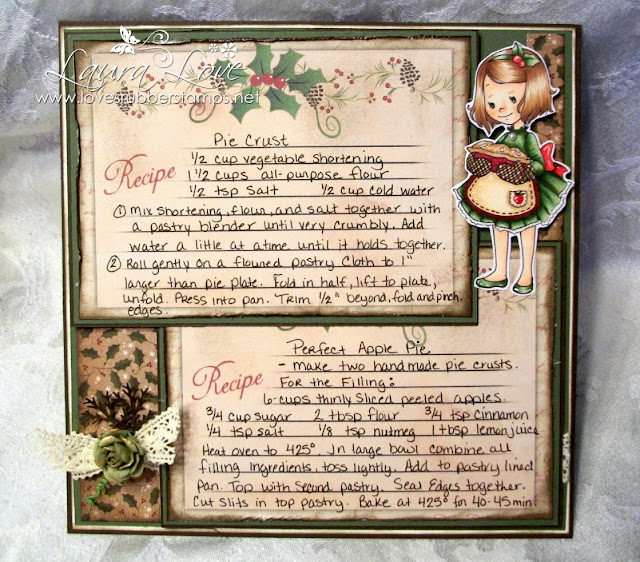 Laura Love
www.lovesrubberstamps.net
Pie Crust
Recipe
1/2 cup vegetable shortening
1 1/2 cups all-purpose flour
1/2 tsp Salt 1/2 cup cold water
① Mix shortening, flour, and salt together with
a pastry blender until very crumbly. Add
water a little at a time until it holds together.
② Roll gently on a floured pastry cloth to 1"
larger than pie plate. Fold in half, lift to plate,
unfold. Press into pan. Trim 1/2" beyond, fold and pinch
edges.
Perfect Apple Pie
Recipe
- make two handmade pie crusts.
For the Filling:
6-cups thinly Sliced peeled apples.
3/4 cup sugar 2 tbsp flour 3/4 tsp cinnamon
1/4 tsp salt 1/8 tsp nutmeg 1 tbsp lemon juice
Heat oven to 425°. In large bowl combine all
filling ingredients, toss lightly. Add to pastry lined
pan. Top with Second pastry. Seal Edges together.
Cut Slits in top pastry. Bake at 425° for 40-45 min